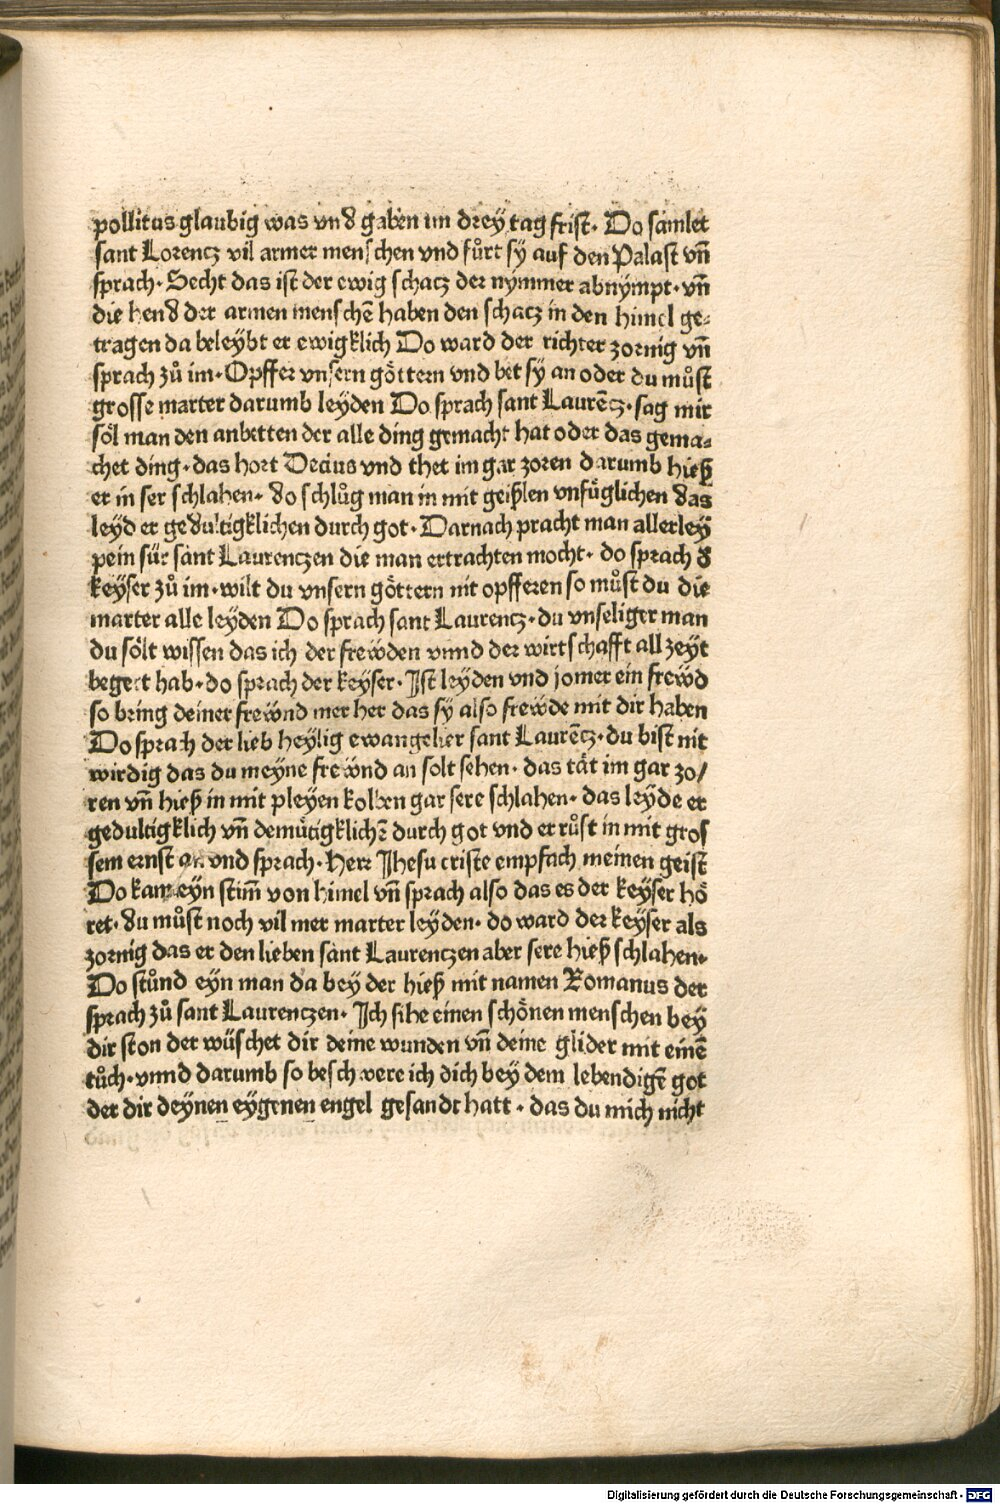 pollitus glaubig was vnd gaben im drey tag frist. Do samlet
sant Lorencz vil armer menschen vnd fůrt sÿ auf den Palast vn̄
sprach. Secht das ist der ewig schacz der nymmer abnympt. vn̄
die hend der armen menschē haben den schacz in den himel ge⸗
tragen da beleybt er ewigklich Do ward der richter zornig vn̄
sprach zů im. Opffer vnsern göttern vnd bet sÿ an oder du můst
grosse marter darumb leyden Do sprach sant Laurēcz. sag mir
söl man den anbetten der alle ding gemacht hat oder das gema⸗
chet ding. das hort Decius vnd thet im gar zoren darumb hieß
er in ser schlahen. do schlůg man in mit geißlen vnfüglichen das
leyd er gedultigklichen durch got. Darnach pracht man allerley
pein für sant Laurenczen die man ertrachten mocht. do sprach d
keÿser zů im. wilt du vnsern göttern nit opfferen so můst du die
marter alle leyden Do sprach sant Laurencz. du vnseliger man
du sölt wissen das ich der frewden vnnd der wirtschafft all zeyt
begert hab. do sprach der keÿser. Ist leÿden vnd jomer ein frewd
so bring deiner frewnd mer her das sÿ also frewde mit dir haben
Do sprach der lieb heÿlig ewangelier sant Laurēcz. du bist nit
wirdig das du meyne frewnd an solt sehen. das tät im gar zo/
ren vn̄ hieß in mit pleyen kolben gar sere schlahen. das leyde er
gedultigklich vn̄ demütigklichē durch got vnd er růft in mit gros
sem ernst an vnd sprach. Herr Jhesu criste empfach meinen geist
Do kam eyn stim̄ von himel vn̄ sprach also das es der keÿser hö
ret. du můst noch vil mer marter leyden. do ward der keÿser als
zornig das er den lieben sant Laurenczen aber sere hieß schlahen.
Do stůnd eyn man da bey der hieß mit namen Romanus der
sprach zů sant Laurenczen. Ich sihe einen schönen menschen bey
dir ston der wüschet dir deine wunden vn̄ deine glider mit einē
tůch. vnnd darumb so beschwere ich dich bey dem lebendigē got
der dir deynen eygenen engel gesandt hatt. das du mich nicht
Digitalisierung gefördert durch die Deutsche Forschungsgemeinschaft - DFG